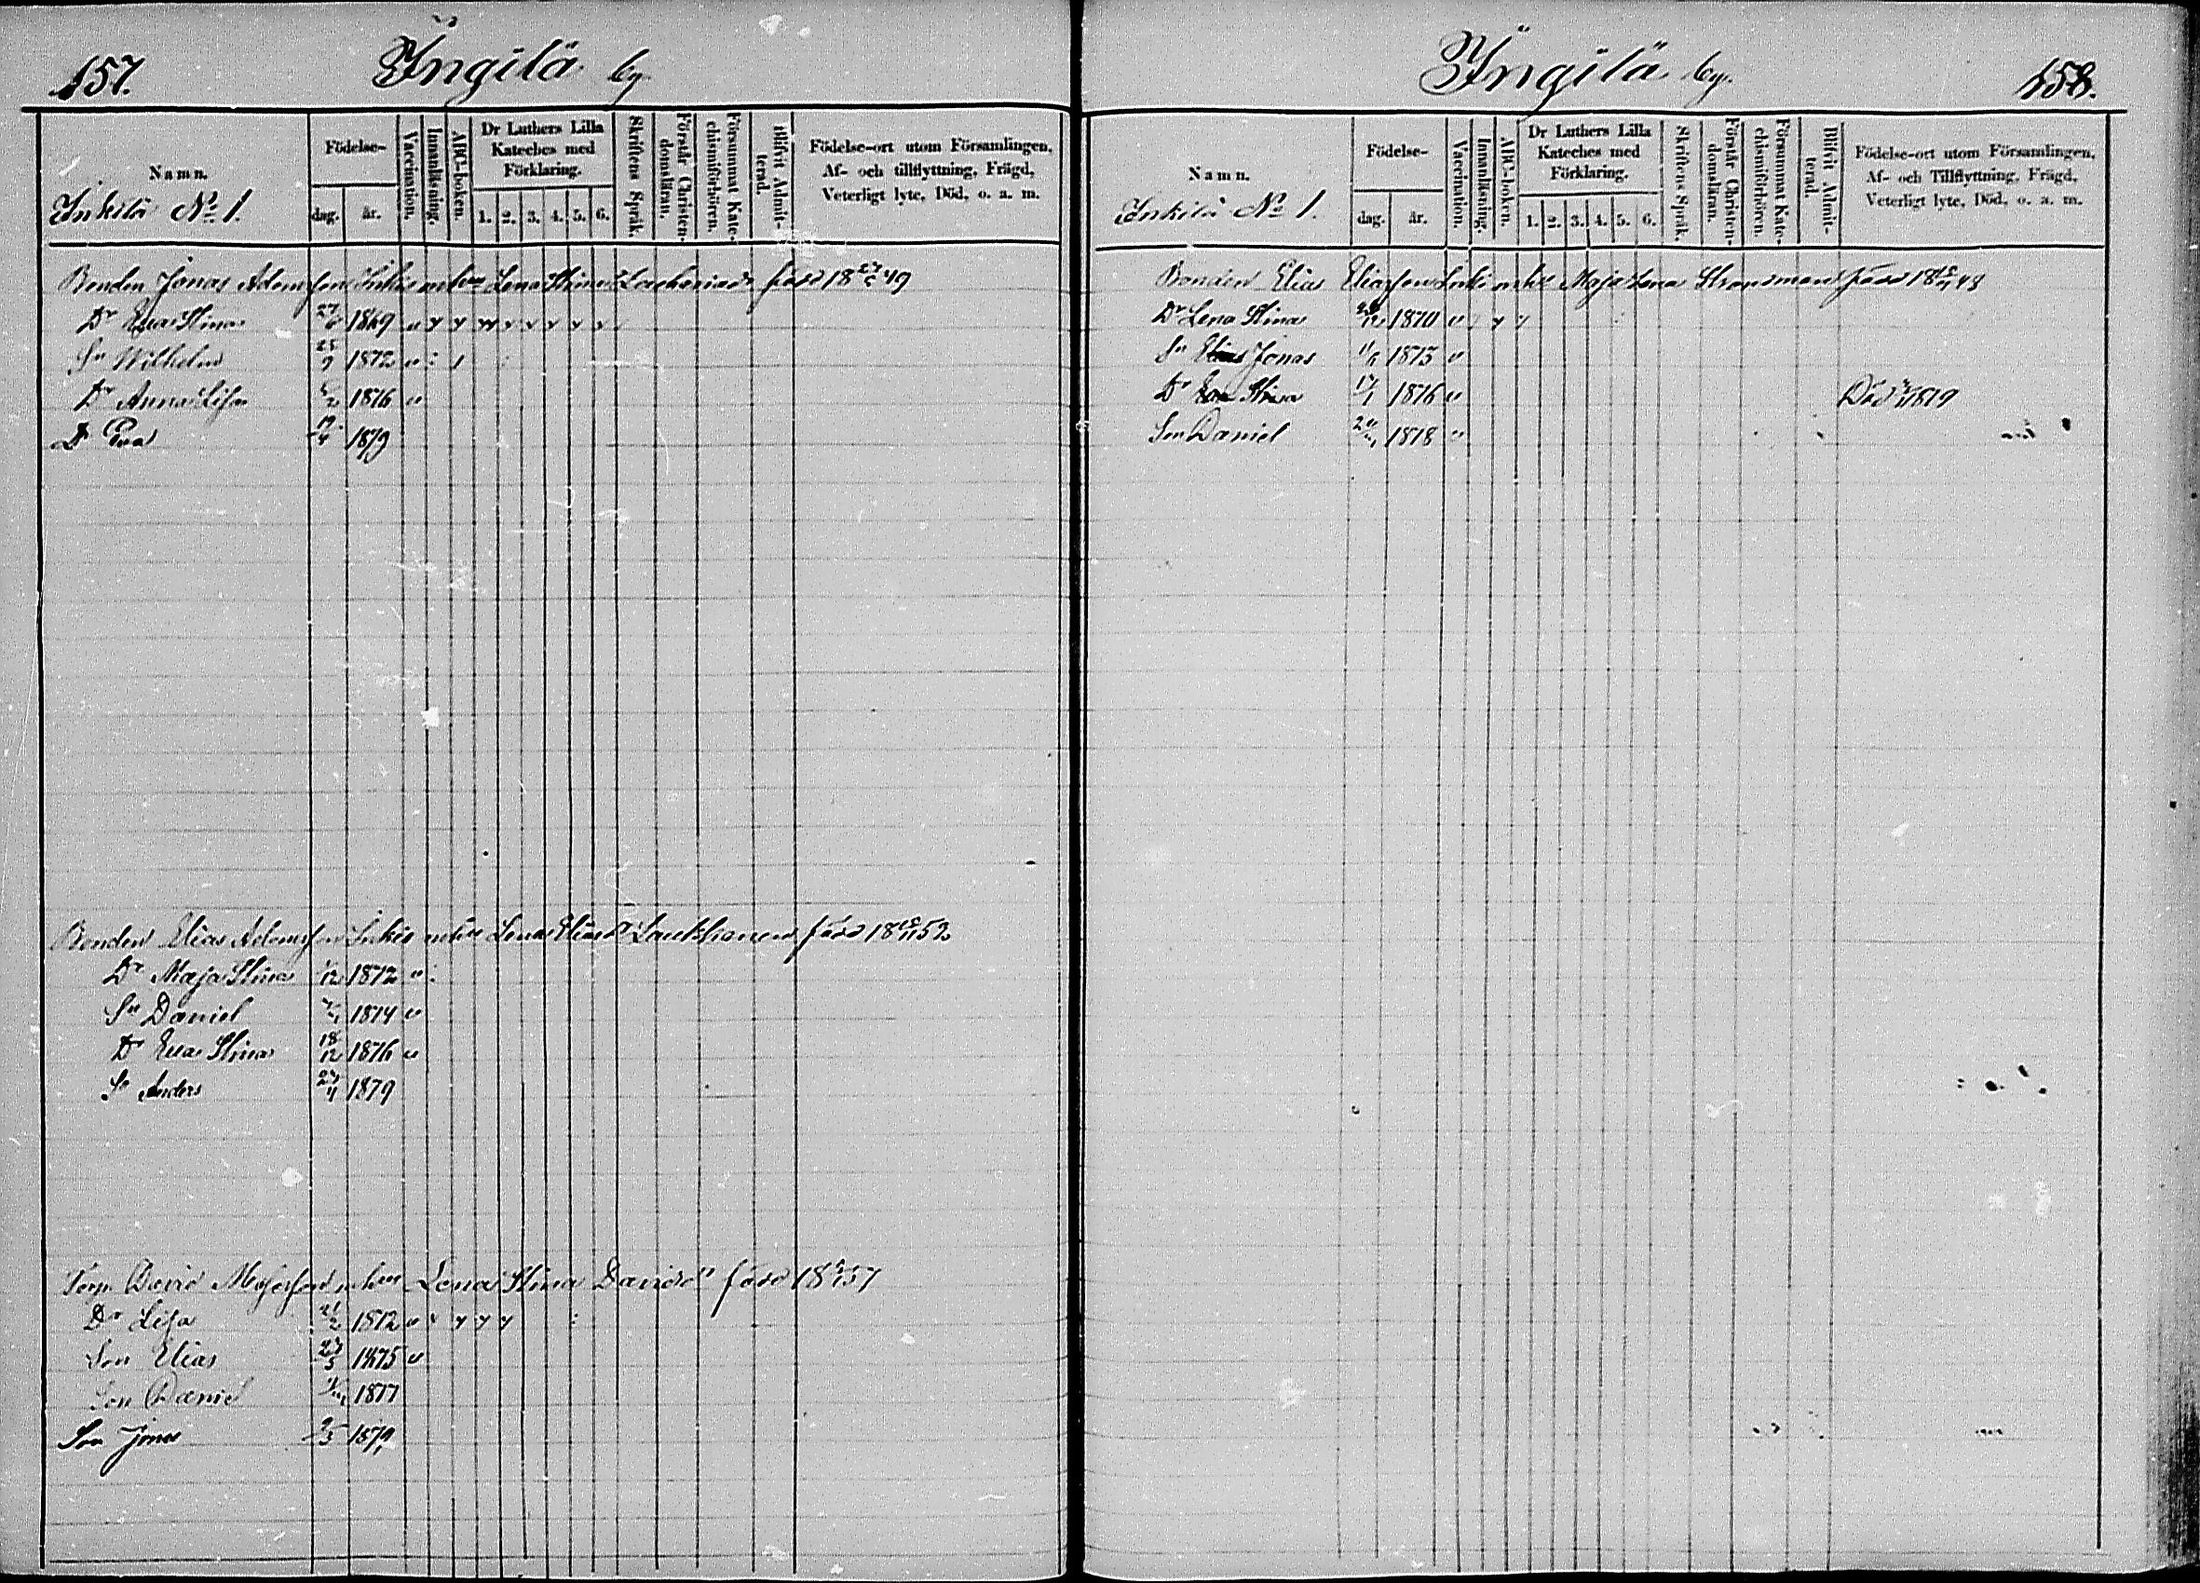 157. Ingilä by.
Namn.
Inkilä No 1.
Födelse-
dag. år.
Vaccination.
Innanläsning.
ABC-boken.
Dr Luthers Lilla Kateches med Förklaring.
1. 2. 3. 4. 5. 6.
Skriftens Språk.
Förstår Christendomsläran.
Försummat Katechismiförhören.
Blifvit Admitterad.
Födelse-ort utom Församlingen, Af- och tillflyttning, Frägd, Veterligt lyte, Död, o. a. m.
Bonden Jonas Adamsson Inki o. hu Lena Stina Zachariad. född 18 49
Dr Eva Stina 1869
Sn Wilhelm 25/9 1872
Dr Anna Lisa 1876
Dr Eva 19/4 1879
Bonden Elias Adamsson Inki o hu Lena Eliasdr Laukkanen född 18 52
Dr Maja Stina 1872
Sn Daniel 1874
Dr Eva Stina 18/12 1876
Sn Anders 27/11 1879
Torp. David hu Lena Stina Davidsdr född 18 57
Dr Lisa 21/2 1872
Son Elias 27/5 1875
Son Daniel 1877
Son Jonas 1879
Ingilä by. 158.
Namn.
Inkilä No 1.
Födelse-
dag. år.
Vaccination.
Innanläsning.
ABC-boken.
Dr Luthers Lilla Kateches med Förklaring.
1. 2. 3. 4. 5. 6.
Skriftens Språk.
Förstår Christendomsläran.
Försummat Katechismiförhören.
Blifvit Admitterad.
Födelse-ort utom Församlingen, Af- och Tillflyttning, Frägd, Veterligt lyte, Död, o. a. m.
Bonden Elias Eliasson Inki o hu Maja Lena Stransman född 18 48
Dr Lena Stina 1870
Sn Jonas 11/6 1873
Dr Stina 17/1 1876 Död 1879
Son Daniel 1878